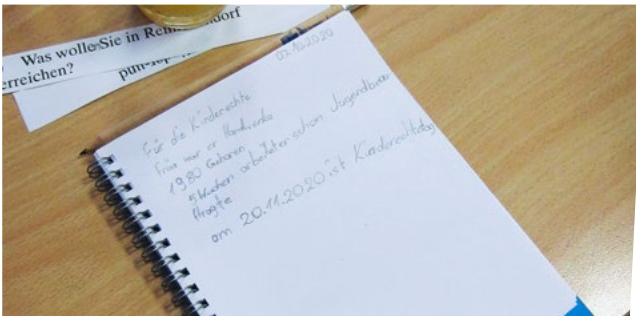 Was wollen Sie in Reinickendorf
erreichen?
02.10.2020
für die Kinderechte
früa war er Handwerke
1980 Geboren
5 Wochen arbeitet er schon Jugendbeau
ftragte
am 20.11.2020 ist Kinderechtstag